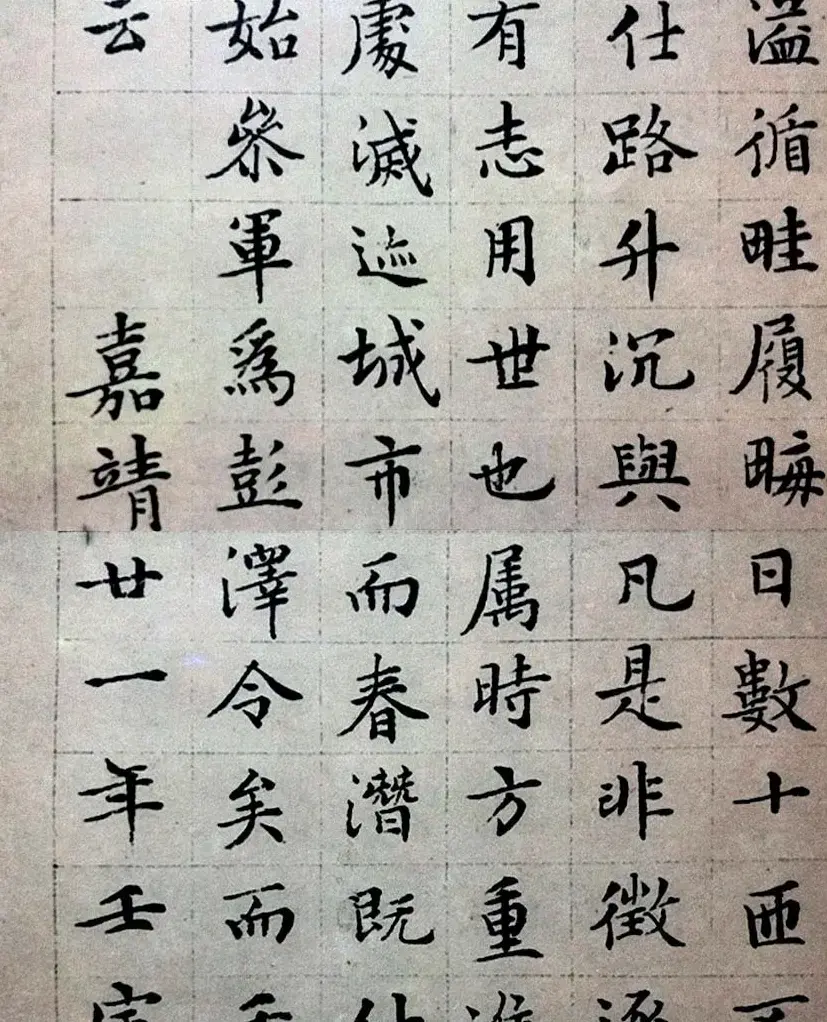 溢循畦履畮日數十匝
仕路升沉與凡是非徵逐
有志用世也属時方重
處滅迹城市而春潛既仕
始叅軍爲彭澤令矣而
云嘉靖廿一年壬寅